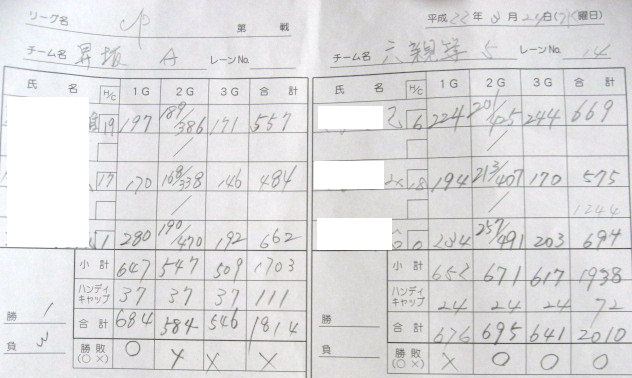 リーグ名 第 戦
チーム名 昇坂 A レーンNo.
氏 名 H/C 1G 2G 3G 合計
19 197 189/386 171 557
17 170 168/338 146 484
1 280 190/470 192 662
小計 647 547 509 1703
ハンディキャップ 37 37 37 111
勝 1 合計 684 584 546 1814
負 3 勝敗(○×) ○ × × ×
平成 22年 月 日 曜日)
チーム名 5 レーンNo. 14
氏 名 H/C 1G 2G 3G 合計
6 224 201/425 244 669
18 194 213/407 170 575
1244
0 234 257/491 203 694
小計 652 671 617 1938
ハンディキャップ 24 24 24 72
勝 合計 676 695 641 2010
負 勝敗(○×) × ○ ○ ○